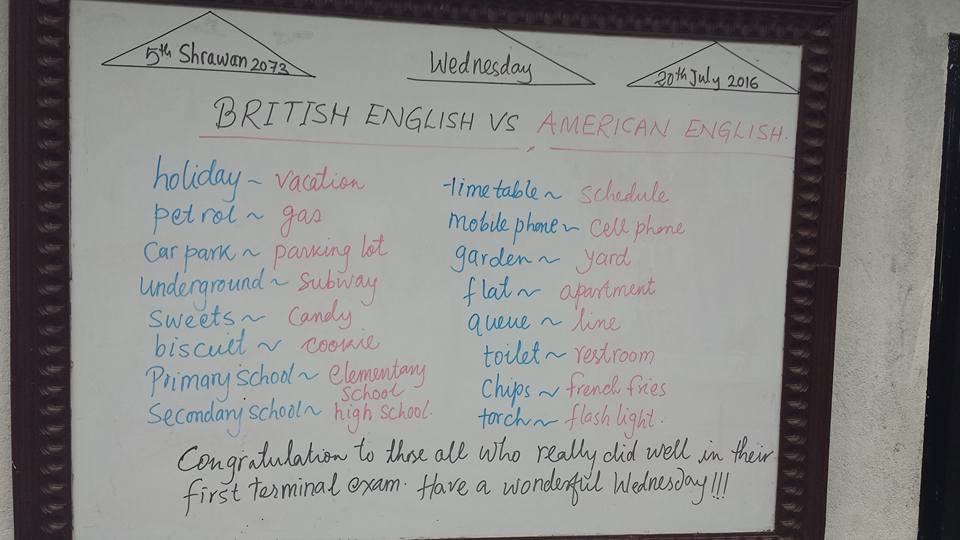 5th Shrawan 2073
Wednesday
20th July 2016
BRITISH ENGLISH VS AMERICAN ENGLISH.
holiday ~ vacation
petrol ~ gas
Car park ~ parking lot
Underground ~ Subway
Sweets ~ Candy
biscuit ~ cookie
Primary school ~ elementary school
Secondary school ~ high school.
timetable ~ schedule
mobile phone ~ cell phone
garden ~ yard
flat ~ apartment
queue ~ line
toilet ~ restroom
Chips ~ french fries
torch ~ flash light.
Congratulation to those all who really did well in their
first terminal exam. Have a wonderful Wednesday!!!